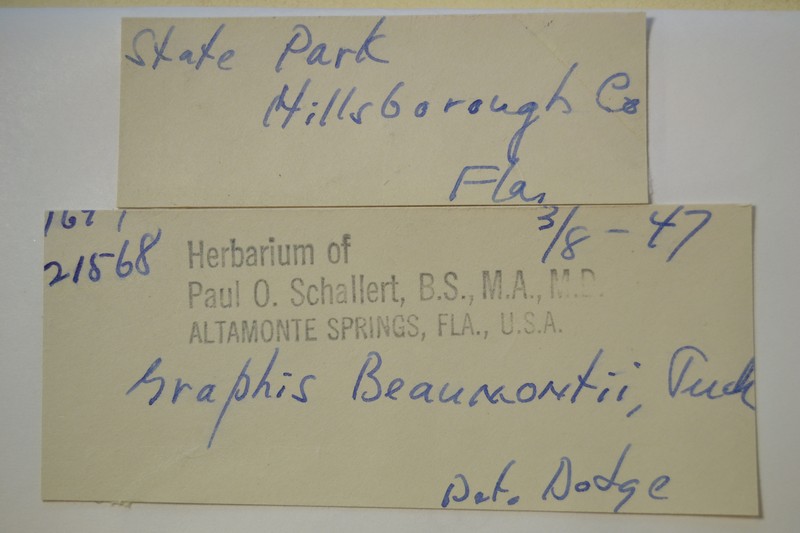 State Park
Hillsborough Co
Fla.
3/8-47
21568
Herbarium of
Paul O. Schallert, B.S., M.A., M.D.
ALTAMONTE SPRINGS, FLA., U.S.A.
Graphis Beaumontii, Tuck
Det. Dodge